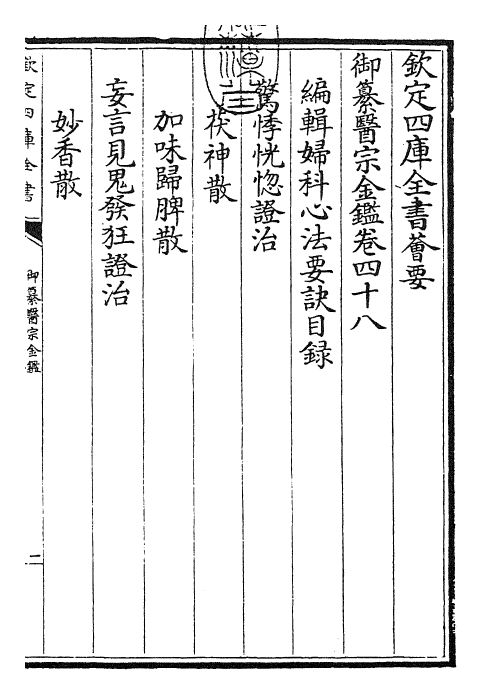 欽定四庫全書薈要
御纂醫宗金鑑卷四十八
編輯婦科心法要訣目録
驚悸恍惚證治
茯神散
加味歸脾散
妄言見鬼發狂證治
妙香散
欽定四庫全書
御纂醫宗金鑑
二